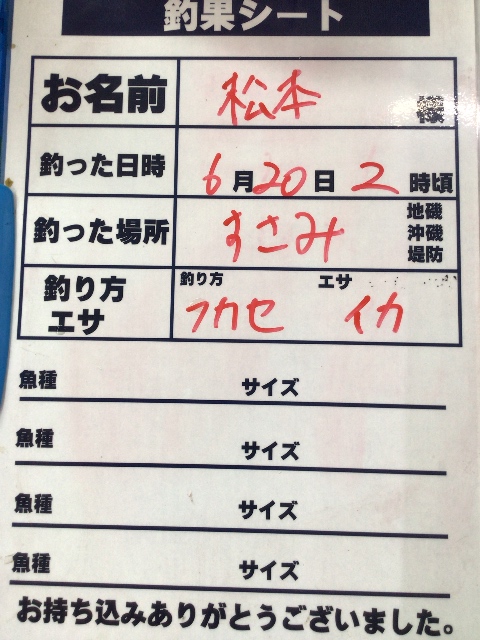 釣果シート
お名前 松本 様
釣った日時 6月20日 2時頃
釣った場所 すさみ 地磯 沖磯 堤防
釣り方 エサ 釣り方 フカセ エサ イカ
魚種 サイズ
魚種 サイズ
魚種 サイズ
魚種 サイズ
お持ち込みありがとうございました。